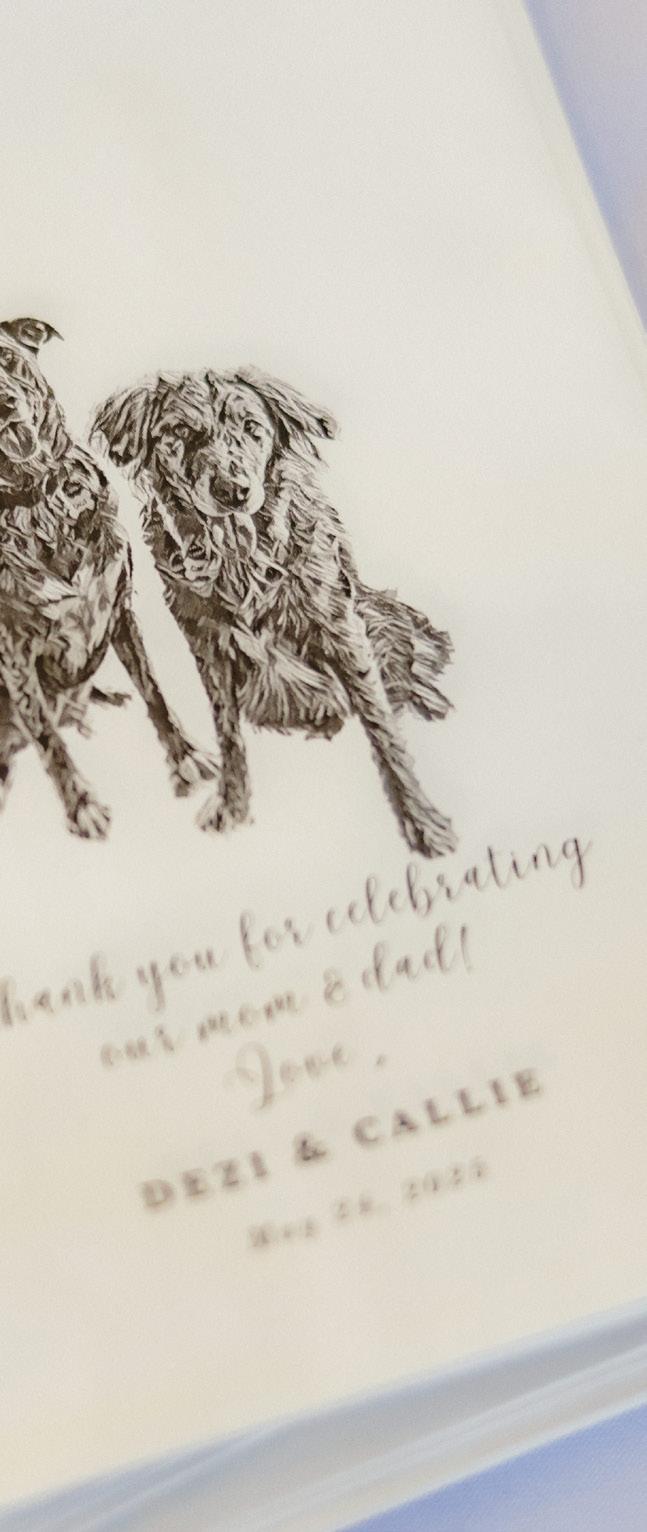 hank you for celebrating
our mom & dad!
Love,
DEZI & CALLIE